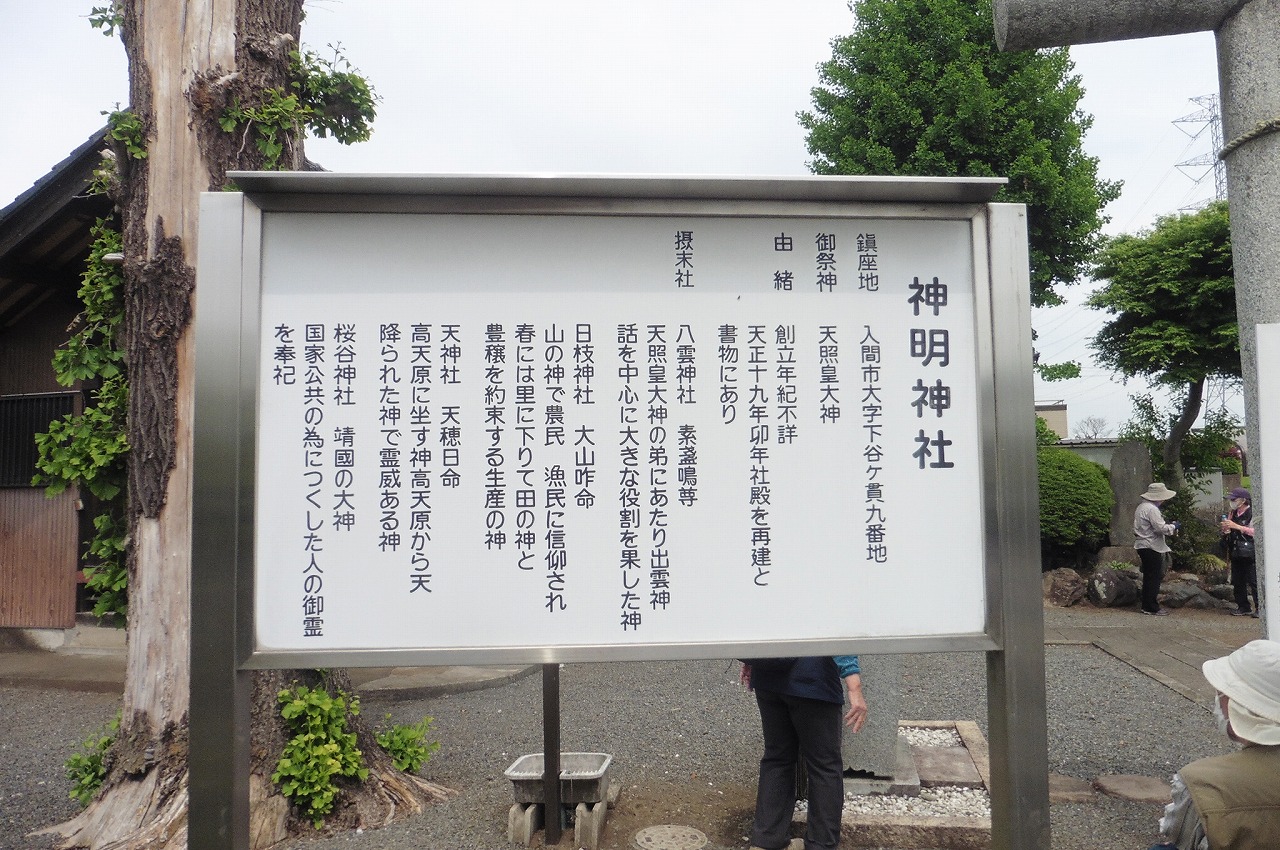 神明神社
鎮座地　入間市大字下谷ケ貫九番地
御祭神　天照皇大神
由　緒　創立年紀不詳
天正十九年卯年社殿を再建と
書物にあり
摂末社　八雲神社　素盞鳴尊
天照皇大神の弟にあたり出雲神
話を中心に大きな役割を果した神
日枝神社　大山咋命
山の神で農民　漁民に信仰され
春には里に下りて田の神と
豊穣を約束する生産の神
天神社　天穂日命
高天原に坐す神高天原から天
降られた神で霊威ある神
桜谷神社　靖國の大神
国家公共の為につくした人の御霊
を奉祀